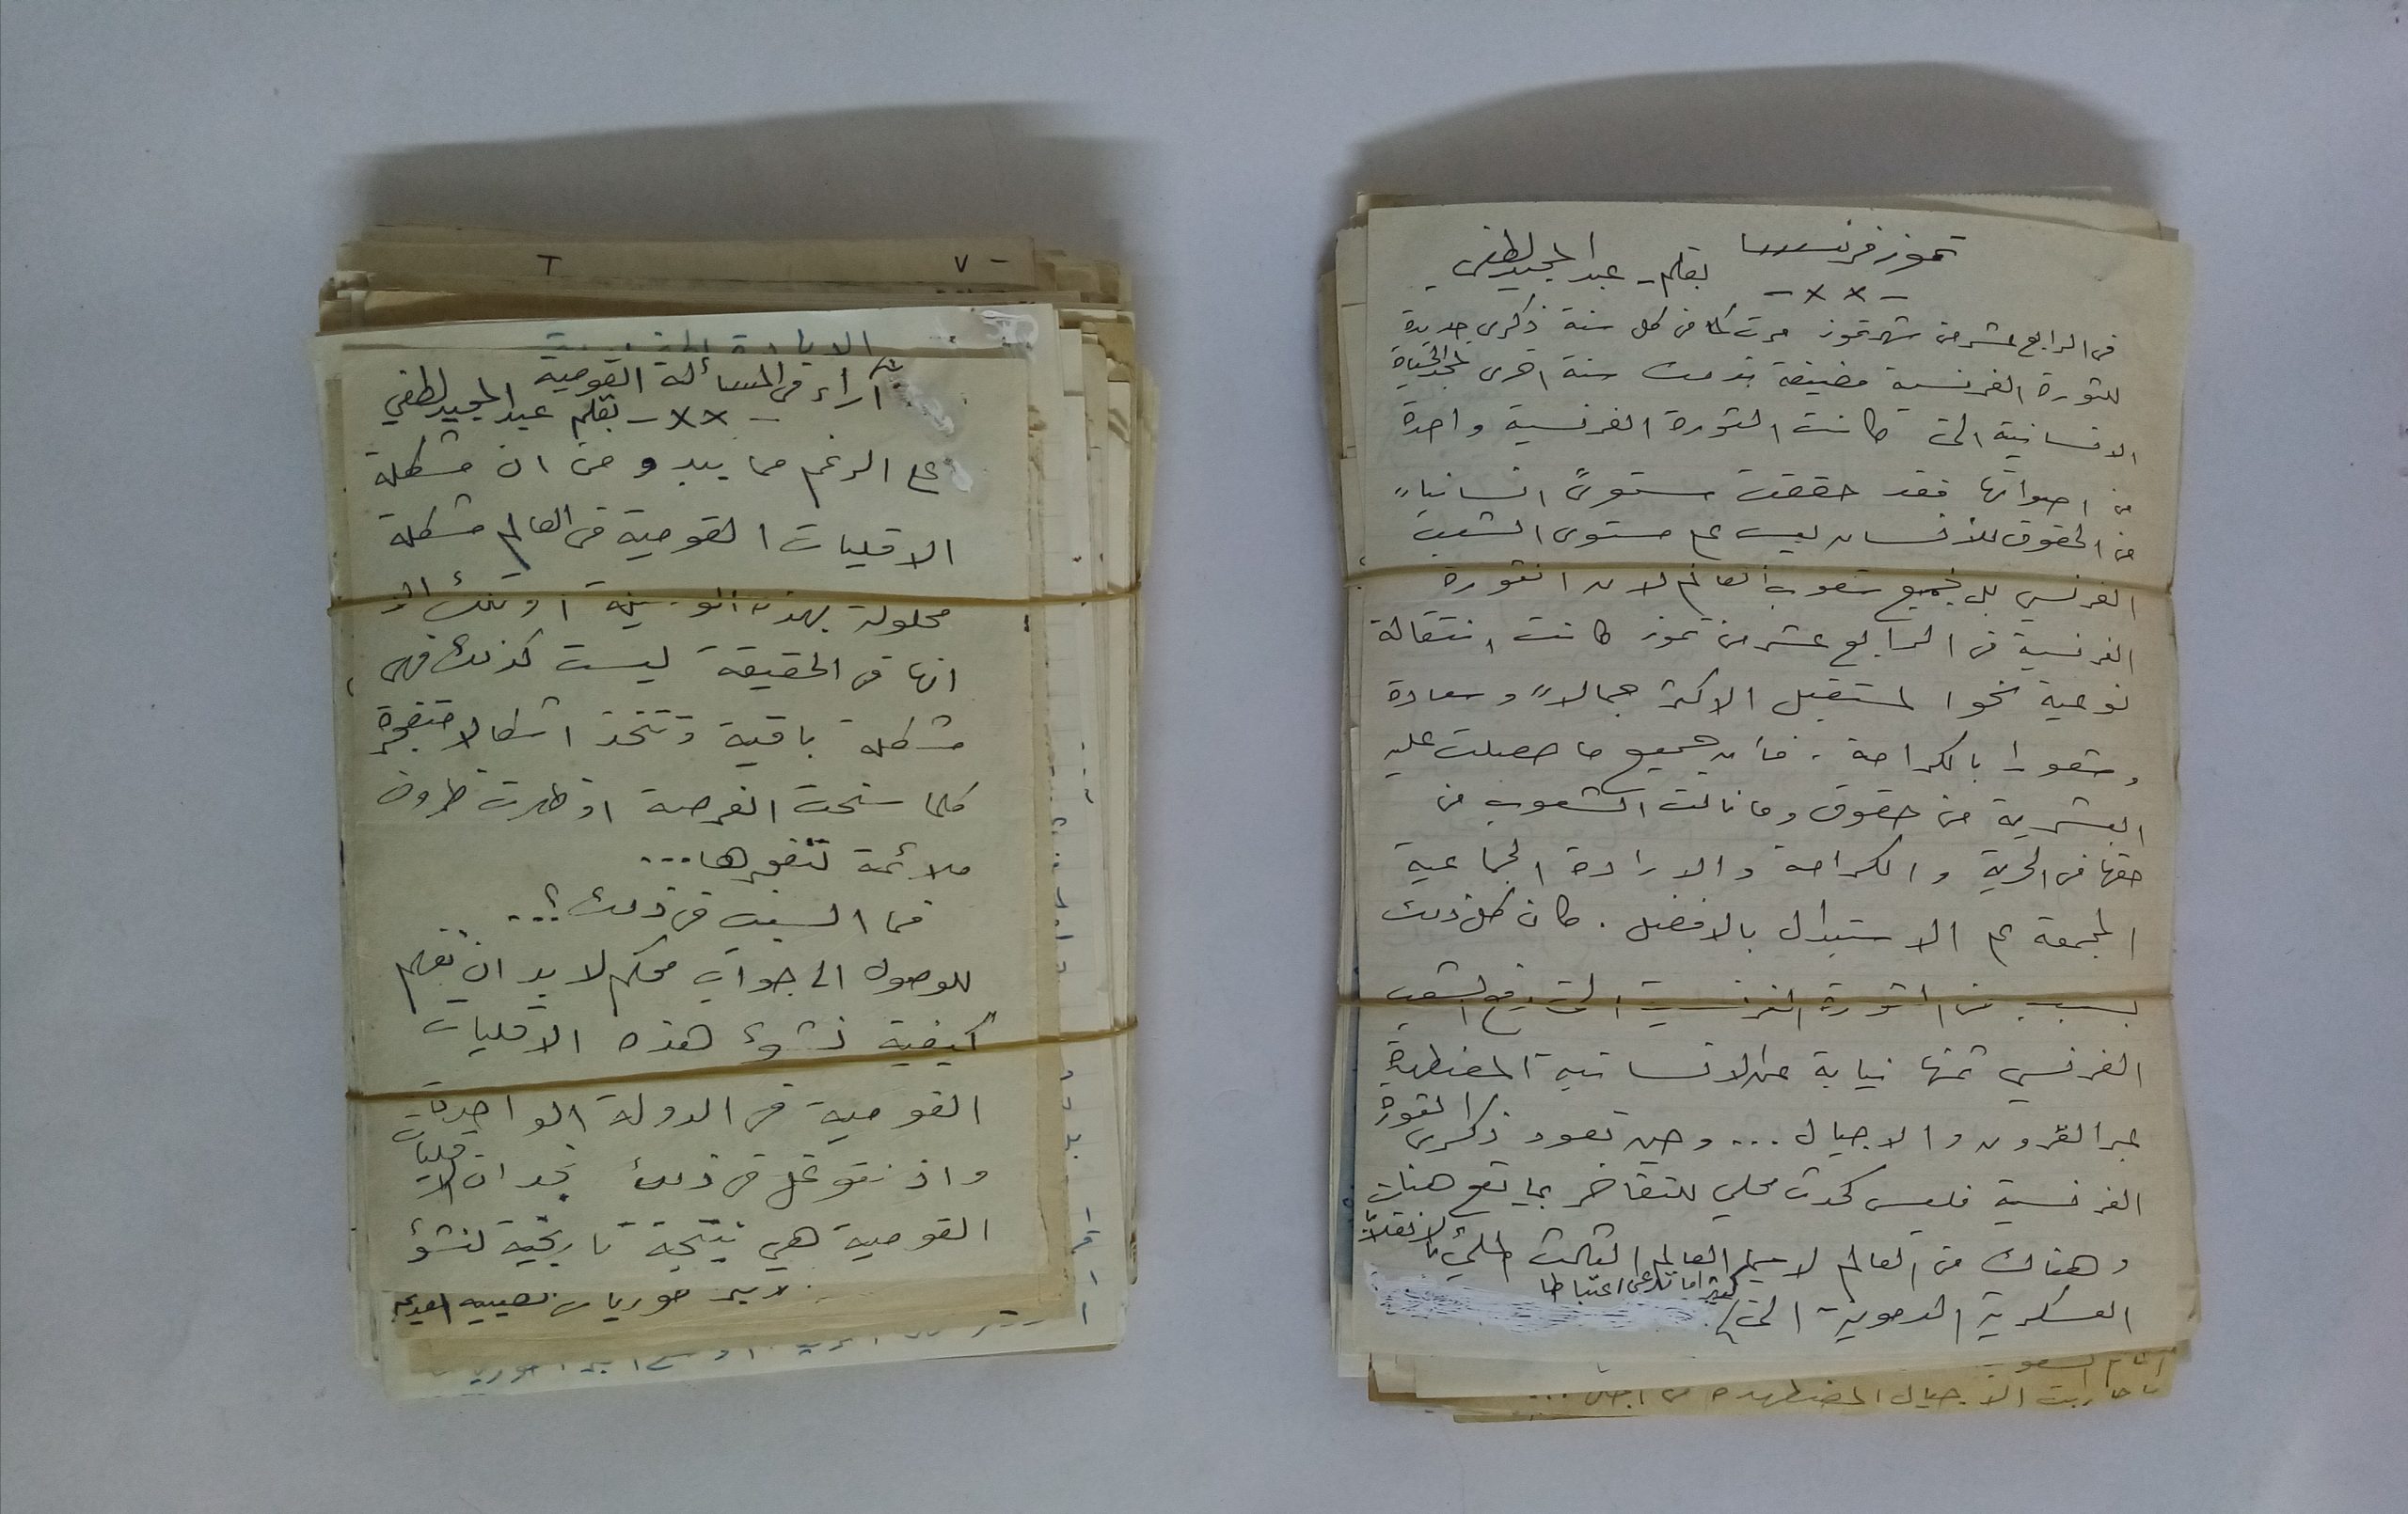 تموز فرنسا
بقلم - عبد المجيد لطفي
- × × -
في الرابع عشر من شهر تموز مرت كما في كل سنة ذكرى جديدة
للثورة الفرنسية مضيفة بذلك سنة اخرى لمجد الحياة
الانسانية التي كانت الثورة الفرنسية واحدة
من اصواتها فقد حققت مستوىً انسانياً
من الحقوق للأنسان ليس على مستوى الشعب
الفرنسي بل لجميع شعوب العالم لان الثورة
الفرنسية في الرابع عشر من تموز كانت انتقالة
نوعية نحو المستقبل الاكثر جمالاً وسعادة
وشعورا بالكرامة . فأن جميع ما حصلت عليه
البشرية من حقوق وما نالت الشعوب من
حقها في الحرية والكرامة والارادة الجماعية
المجمعة على الاستبدال بالافضل . كان كل ذلك
بسبب من الثورة الفرنسية التي دفع الشعب
الفرنسي ثمنها نيابة عن الانسانية المضطهدة
عبر القرون والاجيال ... وحين تعود ذكرى الثورة
الفرنسية فليس كحدث محلي للتفاخر بما يقع هنا
وهناك من العالم لاسيما العالم الثالث المليء بالانقلابات
العسكرية الدموية التي كثيرا ما تدعى اعتباطا
الاجيال المضطهدة من اجل ...
آراء في المسألة القومية
- ×× - بقلم عبد المجيد لطفي
على الرغم مما يبدو من ان مشكلة
الاقليات القومية في العالم مشكلة
محلولة بهذه الوسيلة او تلك الا
انها في الحقيقة ليست كذلك فهي
مشكلة باقية وتتخذ اشكالا متفجرة
كلما سنحت الفرصة او ظهرت ظروف
ملائمة لتفجرها...
فما السبب في ذلك؟...
للوصول الى جواب محكم لا بد ان نعلم
كيفية نشوء هذه الاقليات
القومية في الدولة الواحدة
واذ نتوغل في ذلك نجد ان الاقليات
القومية هي نتيجة تاريخية لنشؤ